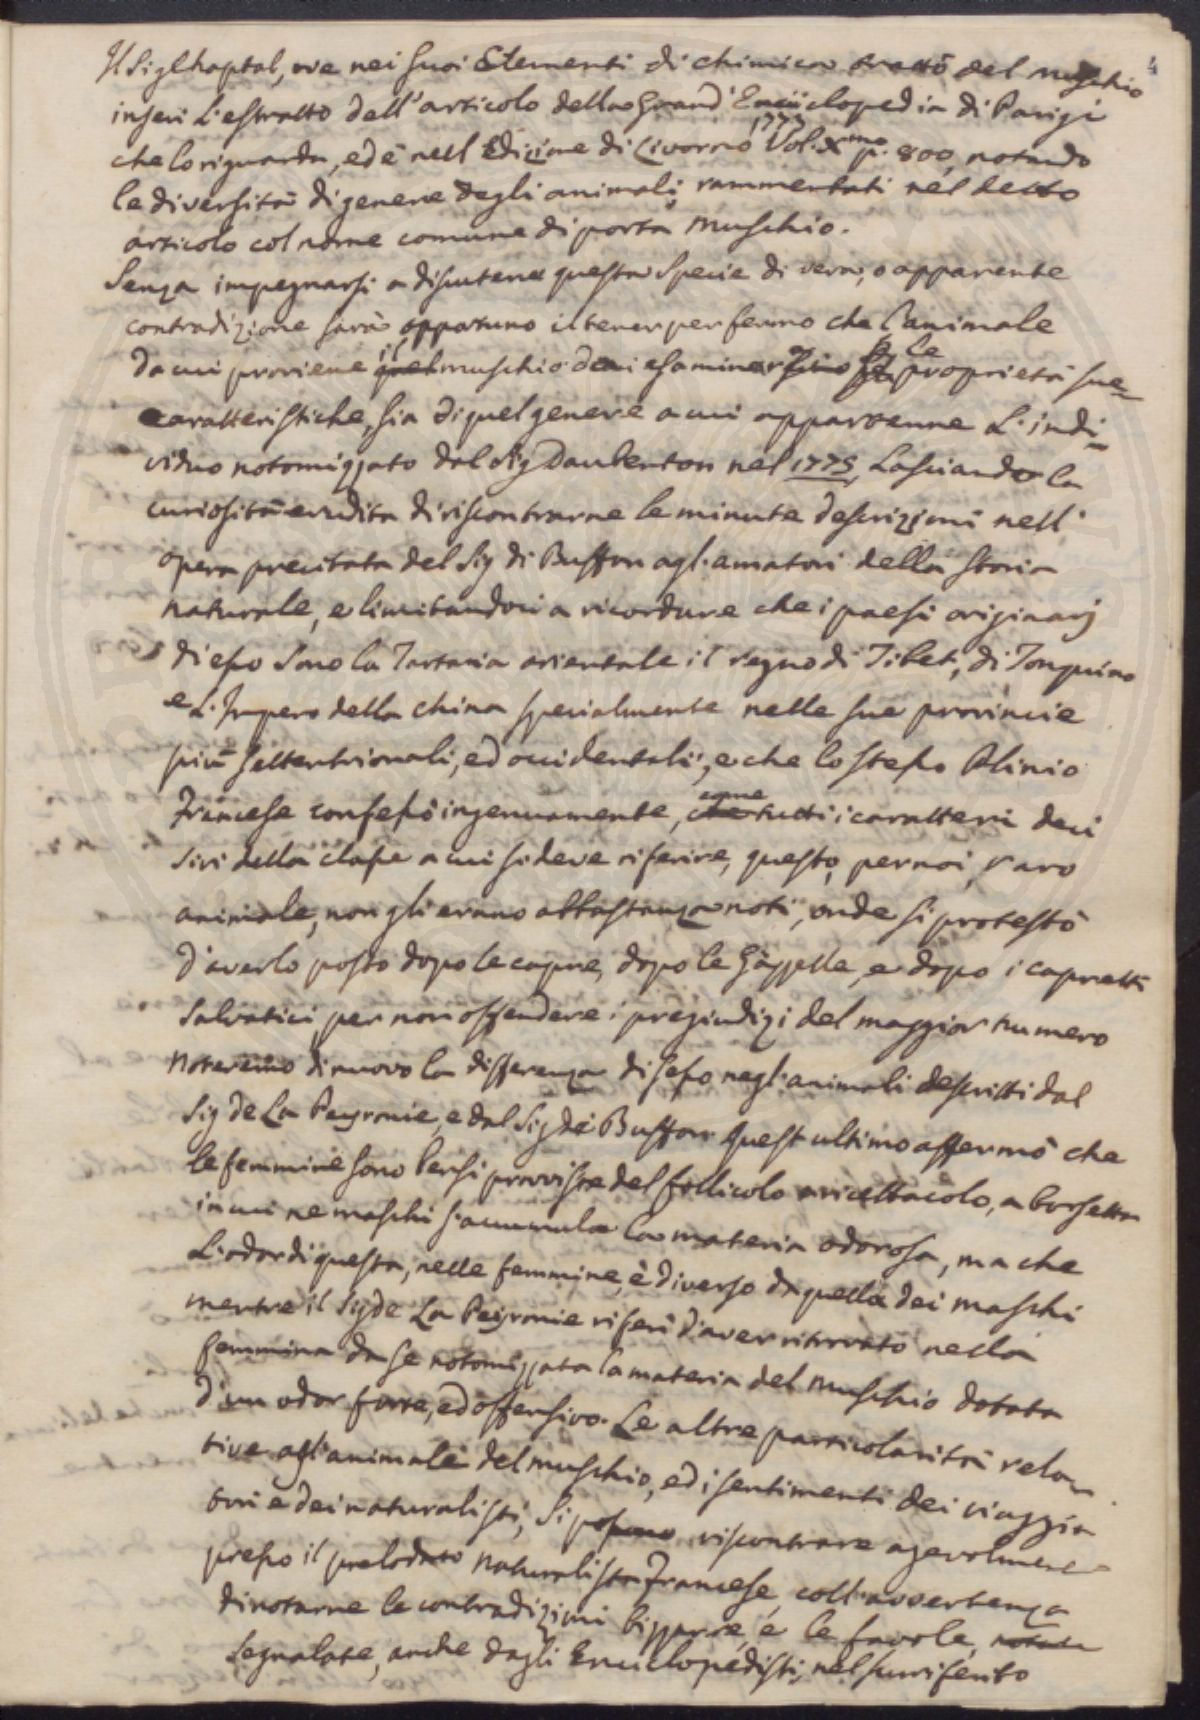 4
Il Sig Chaptal, ove nei suoi Elementi di chimica trattò del muschio
inserì l'estratto dell'articolo della Grand' Enciiclopedia di Parigi
che lo riguarda, ed è nell Edizione di Livorno 1773 Vol. X.mo p. 800, notando
le diversità di genere degli animali rammentati nel detto
articolo col nome comune di porta muschio.
Senza impegnarsi a discutere questa specie di vera, o apparente
contradizione sarà opportuno il tener per fermo che l'animale
da cui proviene il quel muschio di cui esaminar le proprietà sue
caratteristiche, sia di quel genere a cui appartenne L'indi=
viduo notomizzato dal Sig Daubenton nel 1775, Lasciando la
curiosità erudita di riscontrarne le minute descrizioni nell'
opera precitata del Sig di Buffon agl'amatori della storia
naturale, e limitandoci a ricordare che i paesi originarj
di esso sono la Tartaria orientale il regno di Tibet, di Tonquino
e L'Impero della china specialmente nelle sue provincie
più settentrionali, ed occidentali, e che lo stesso Plinio
Francese confessò ingenuamente, che come tutti i caratteri deci
sivi della classe a cui si deve riferire, questo, per noi, raro
animale, non gli erano abbastanza noti, onde si protestò
d'averlo posto dopo le capre, dopo le Gazzelle, e dopo i capretti
salvatici per non offendere i pregiudizi del maggior numero
Noteremo di nuovo la differenza di sesso negl'animali descritti dal
Sig De La Peyronie, e dal Sig di Buffon. Quest ultimo affermò che
le femmine sono bensì provviste del follicolo o ricettacolo, o borsetta
in cui ne maschi s'accumula la materia odorosa, ma che
L'odor di questa, nelle femmine, è diverso da quella dei maschi
mentre il Sig de La Peyronie riferì d'aver ritrovato nella
femmina da se notomizzata la materia del muschio dotata
d'un odor forte, ed offensivo. Le altre particolarità rela=
tive agl'animale del muschio, ed i sentimenti dei viaggia
tori e dei naturalisti, si possono riscontrare agevolmente
presso il prelodato naturalista Francese, coll'avvertenza
di notarne le contradizioni bizzarre, e le favole, notate
segnalate, anche dagli Enciclopedisti, nel surriferito